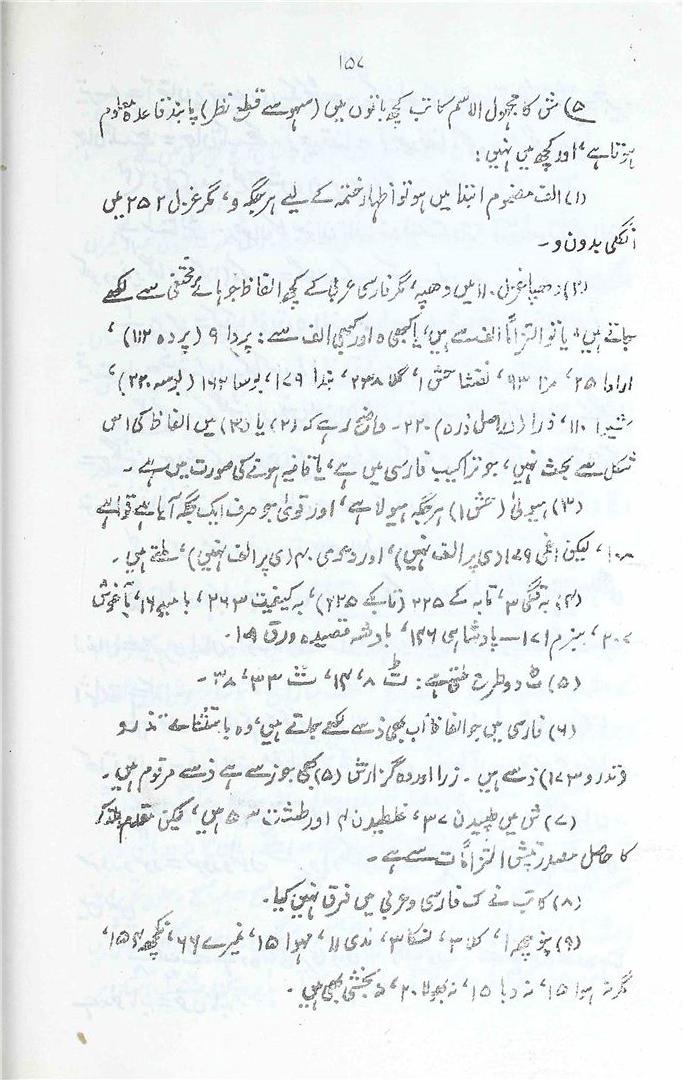 ۱۵۷
۵) ش کا مجہول الاسم کاتب کچھ باتوں میں (سہو سے قطع نظر) پابند قاعدہ معلوم
ہوتا ہے، اور کچھ میں نہیں:
(۱) الف مضموم ابتدا میں ہو تو اظہار ضمہ کے لیے ہر جگہ و، مگر غزل ۲۵۲ میں
انگلی بدون و۔
(۲) دھپا غزل ۱۱۰ میں دھپہ، مگر فارسی عربی کے کچھ الفاظ جو ہائے مختفی سے لکھے
جاتے ہیں، یا تو التزاماً الف سے ہیں، یا کبھی ہ اور کبھی الف سے: پردا ۹ (پردہ ۱۱۲)،
ارادا ۲۵، مزا ۹۳، نقشا حش ۱، گلا ۲۳۸، بندا ۱۷۹، بوسا ۱۶۲ (بوسہ ۲۲۰)،
۱۱۰، ذرا (دراصل ذرہ) ۲۲۰۔ واضح رہے کہ (۲) یا (۳) میں الفاظ کی اس
شکل سے بحث نہیں، جو تراکیب فارسی میں ہے، یا قافیہ ہونے کی صورت میں ہے۔
(۳) ہیولیٰ (حش ۱) ہر جگہ ہیولا ہے، اور قویٰ جو صرف ایک جگہ آیا ہے قوا ہے
۱۰۸، لیکن ۱۷۹ (ی پر الف نہیں)، اور ۲۰ (ی پر الف نہیں)، ملتے ہیں۔
(۴) بہ تنگی ۳، تابہ کے ۲۲۵ (تاکے ۲۲۵)، بہ کیفیت ۲۶۳، ۱۶، بآغوش
۲۰۲، بہ بزم ۱۷۱ — پادشاہی ۱۴۶، بادشہ قصیدہ ورق ۱۵۔
(۵) ٹ دو طرح ملتی ہے: ۸، ۱۴، ۳۳، ۳۸۔
(۶) فارسی میں جو الفاظ اب بھی ذ سے لکھے جاتے ہیں، وہ باستثنائے تذرو
(تدرو ۱۷۳) ذ سے ہیں۔ زرا اور وہ گزارش (۵) بھی جو ز سے ہے ذ سے مرقوم ہیں۔
(۷) ش میں طپیدن ۳۷، غلطیدن ۴ اور طشت ۵۳ ہیں، لیکن
کا حاصل مصدر تپش التزاماً ت سے ہے۔
(۸) کاتب نے ک فارسی و عربی میں فرق نہیں کیا۔
(۹) پوچھ ۱، کلا ۳، لنکا ۳، ندی ۱۱، ہوا ۱۵، ۶۶، ۱۵۴،
نگر نہ ہوا ۱۵، نہ دبا ۱۵، نہ بھولا ۲۰، بھی ہیں۔